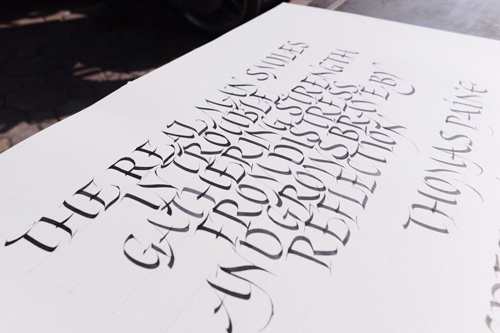 THE REAL MAN SMILES
IN TROUBLE
GATHERING STRENGTH
FROM DISTRESS
AND GROWS BRAVE BY
REFLECTION
THOMAS PAINE